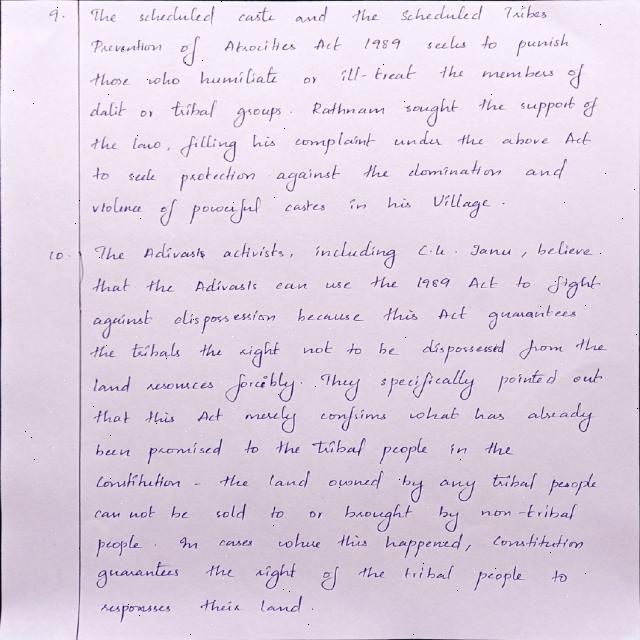 9. The scheduled caste and the Scheduled Tribes
Prevention of Atrocities Act 1989 seeks to punish
those who humiliate or ill-treat the members of
dalit or tribal groups. Rathnam sought the support of
the law, filling his complaint under the above Act
to seek protection against the domination and
violence of powerful castes in his Village.
10. The Adivasis activists, including C.K. Janu, believe
that the Adivasis can use the 1989 Act to fight
against dispossession because this Act guarantees
the tribals the right not to be dispossessed from the
land resources forcibly. They specifically pointed out
that this Act merely confirms what has already
been promised to the tribal people in the
Constitution - the land owned by any tribal people
can not be sold to or brought by non-tribal
people. In cases where this happened, Constitution
guarantees the right of the tribal people to
respossess their land.